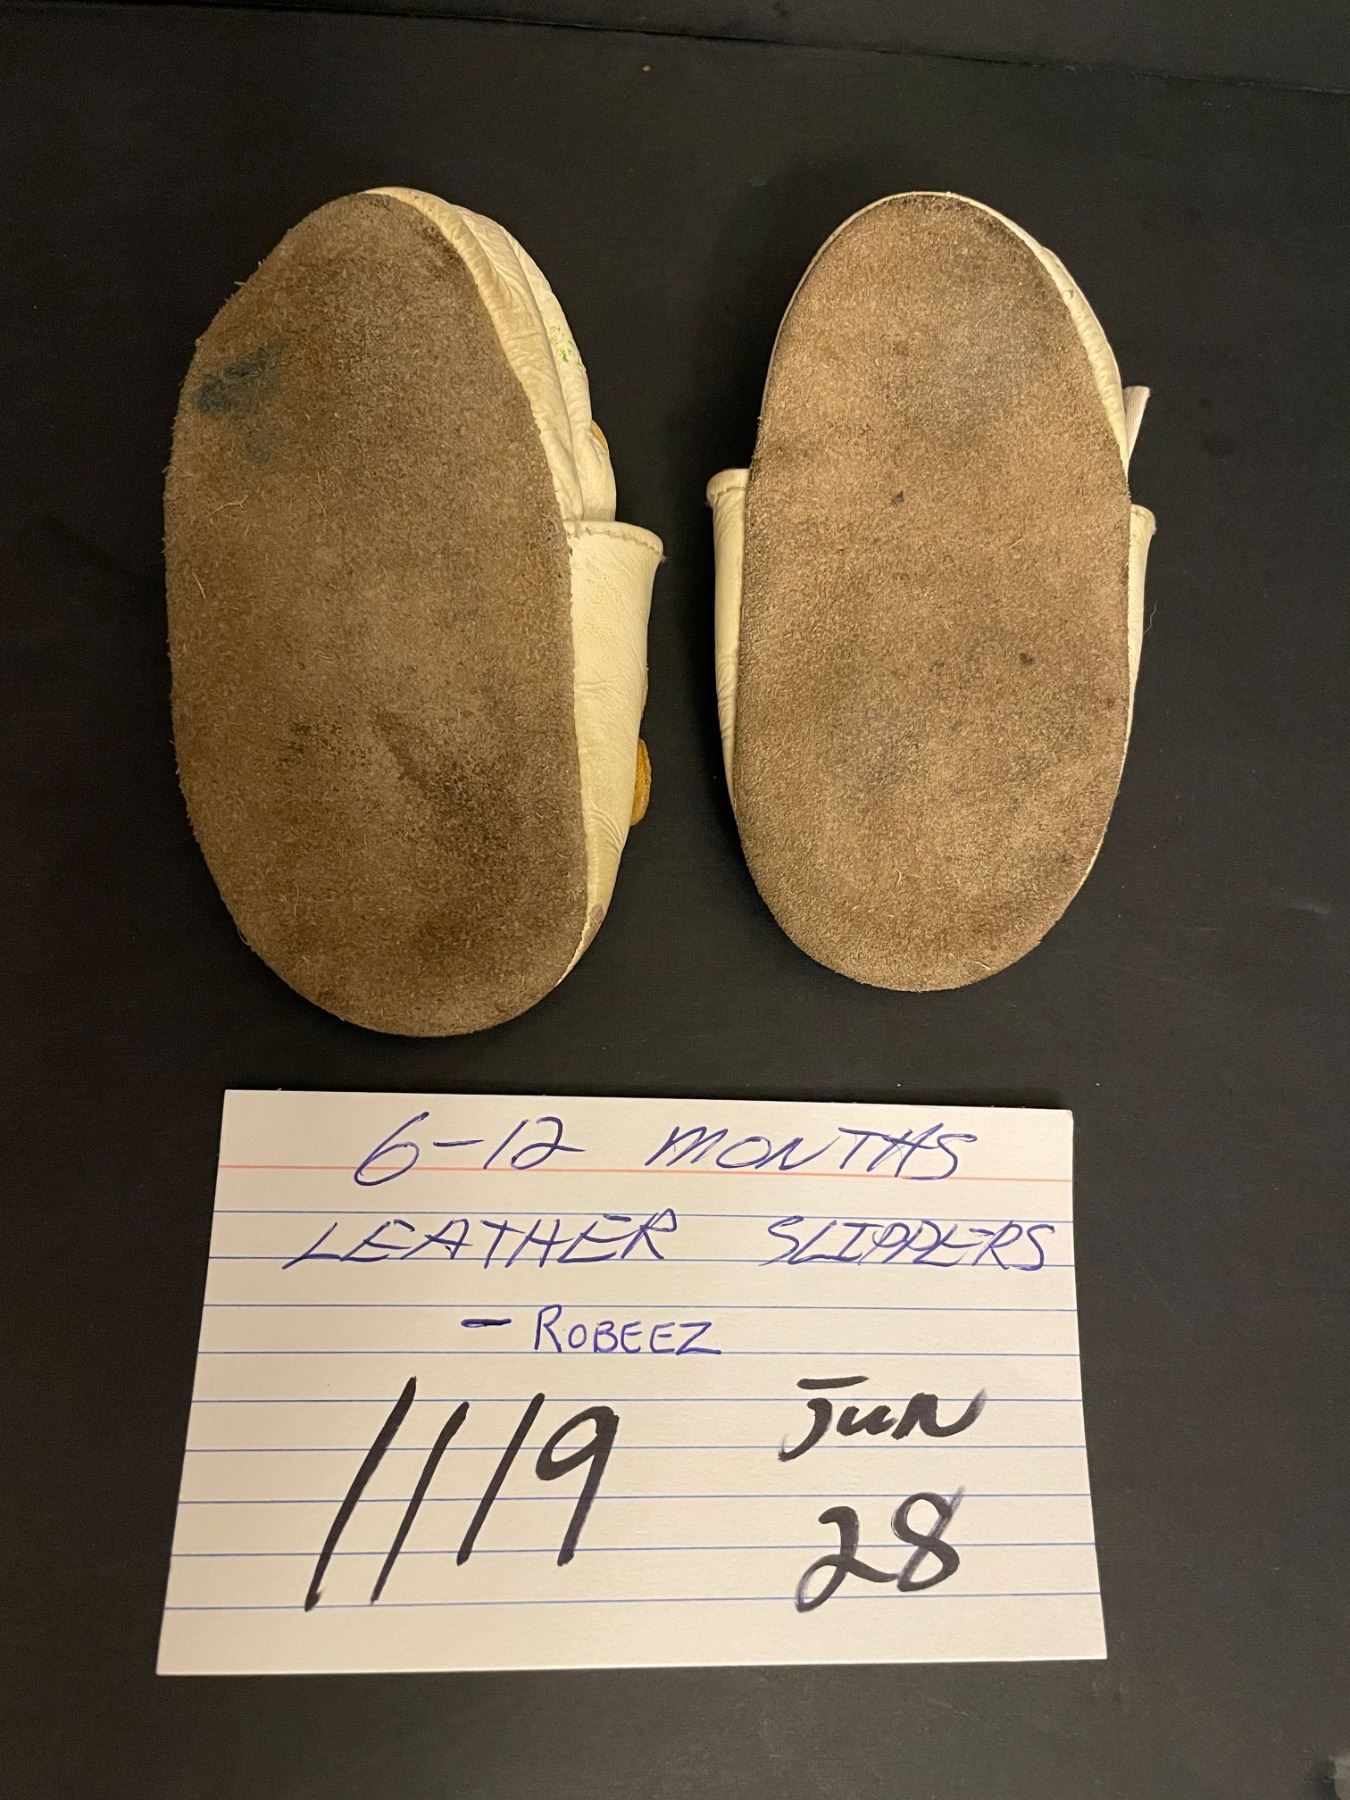 6-12 MONTHS
LEATHER SLIPPERS
- ROBEEZ
1119 JUN
28